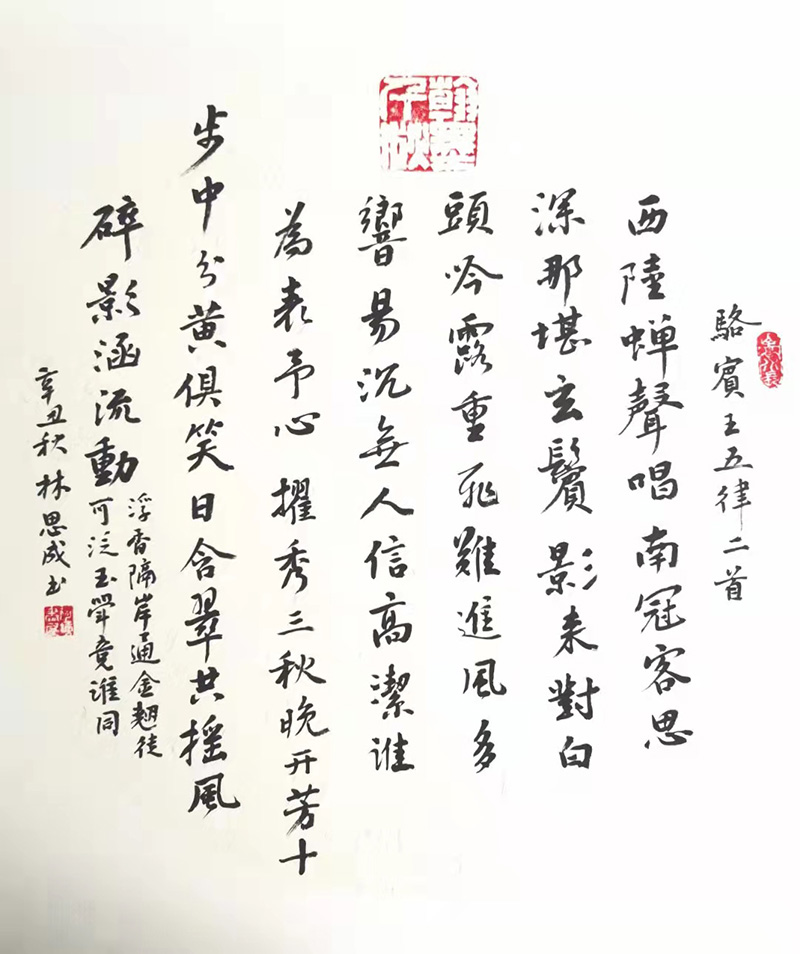 駱賓王五律二首
西陸蝉聲唱南冠客思
深那堪玄鬢影来對白
頭吟露重飛難進風多
響易沉無人信高潔誰
為表予心擢秀三秋晚开芳十
步中分黄俱笑日含翠共摇風
碎影涵流動
浮香隔岸通金翘徒
可泛玉斝竟誰同
辛丑秋林思成书